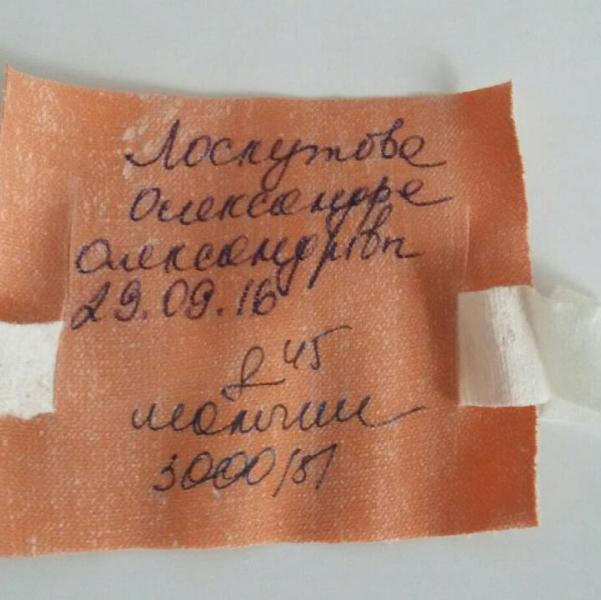 Лоскутова
Олександра
Олександрівн
29.09.16
8 45
мальчик
3000/51